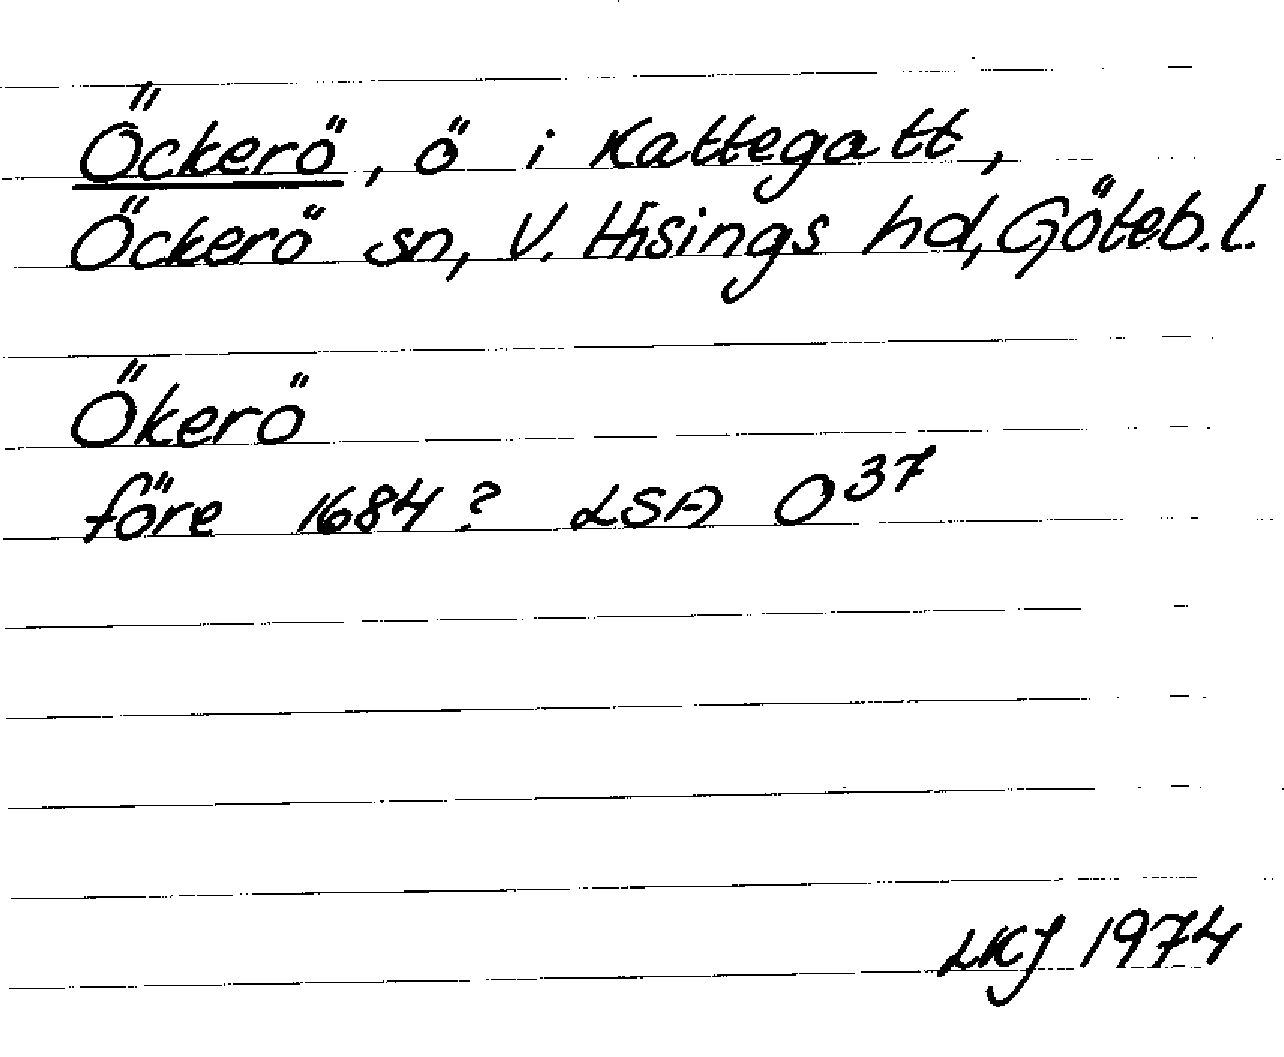 Öckerö, ö i Kattegatt,
Öckerö sn, V. Hisings hd, Göteb. l.
Ökerö
före 1684? LSA O³⁷
LKJ 1974